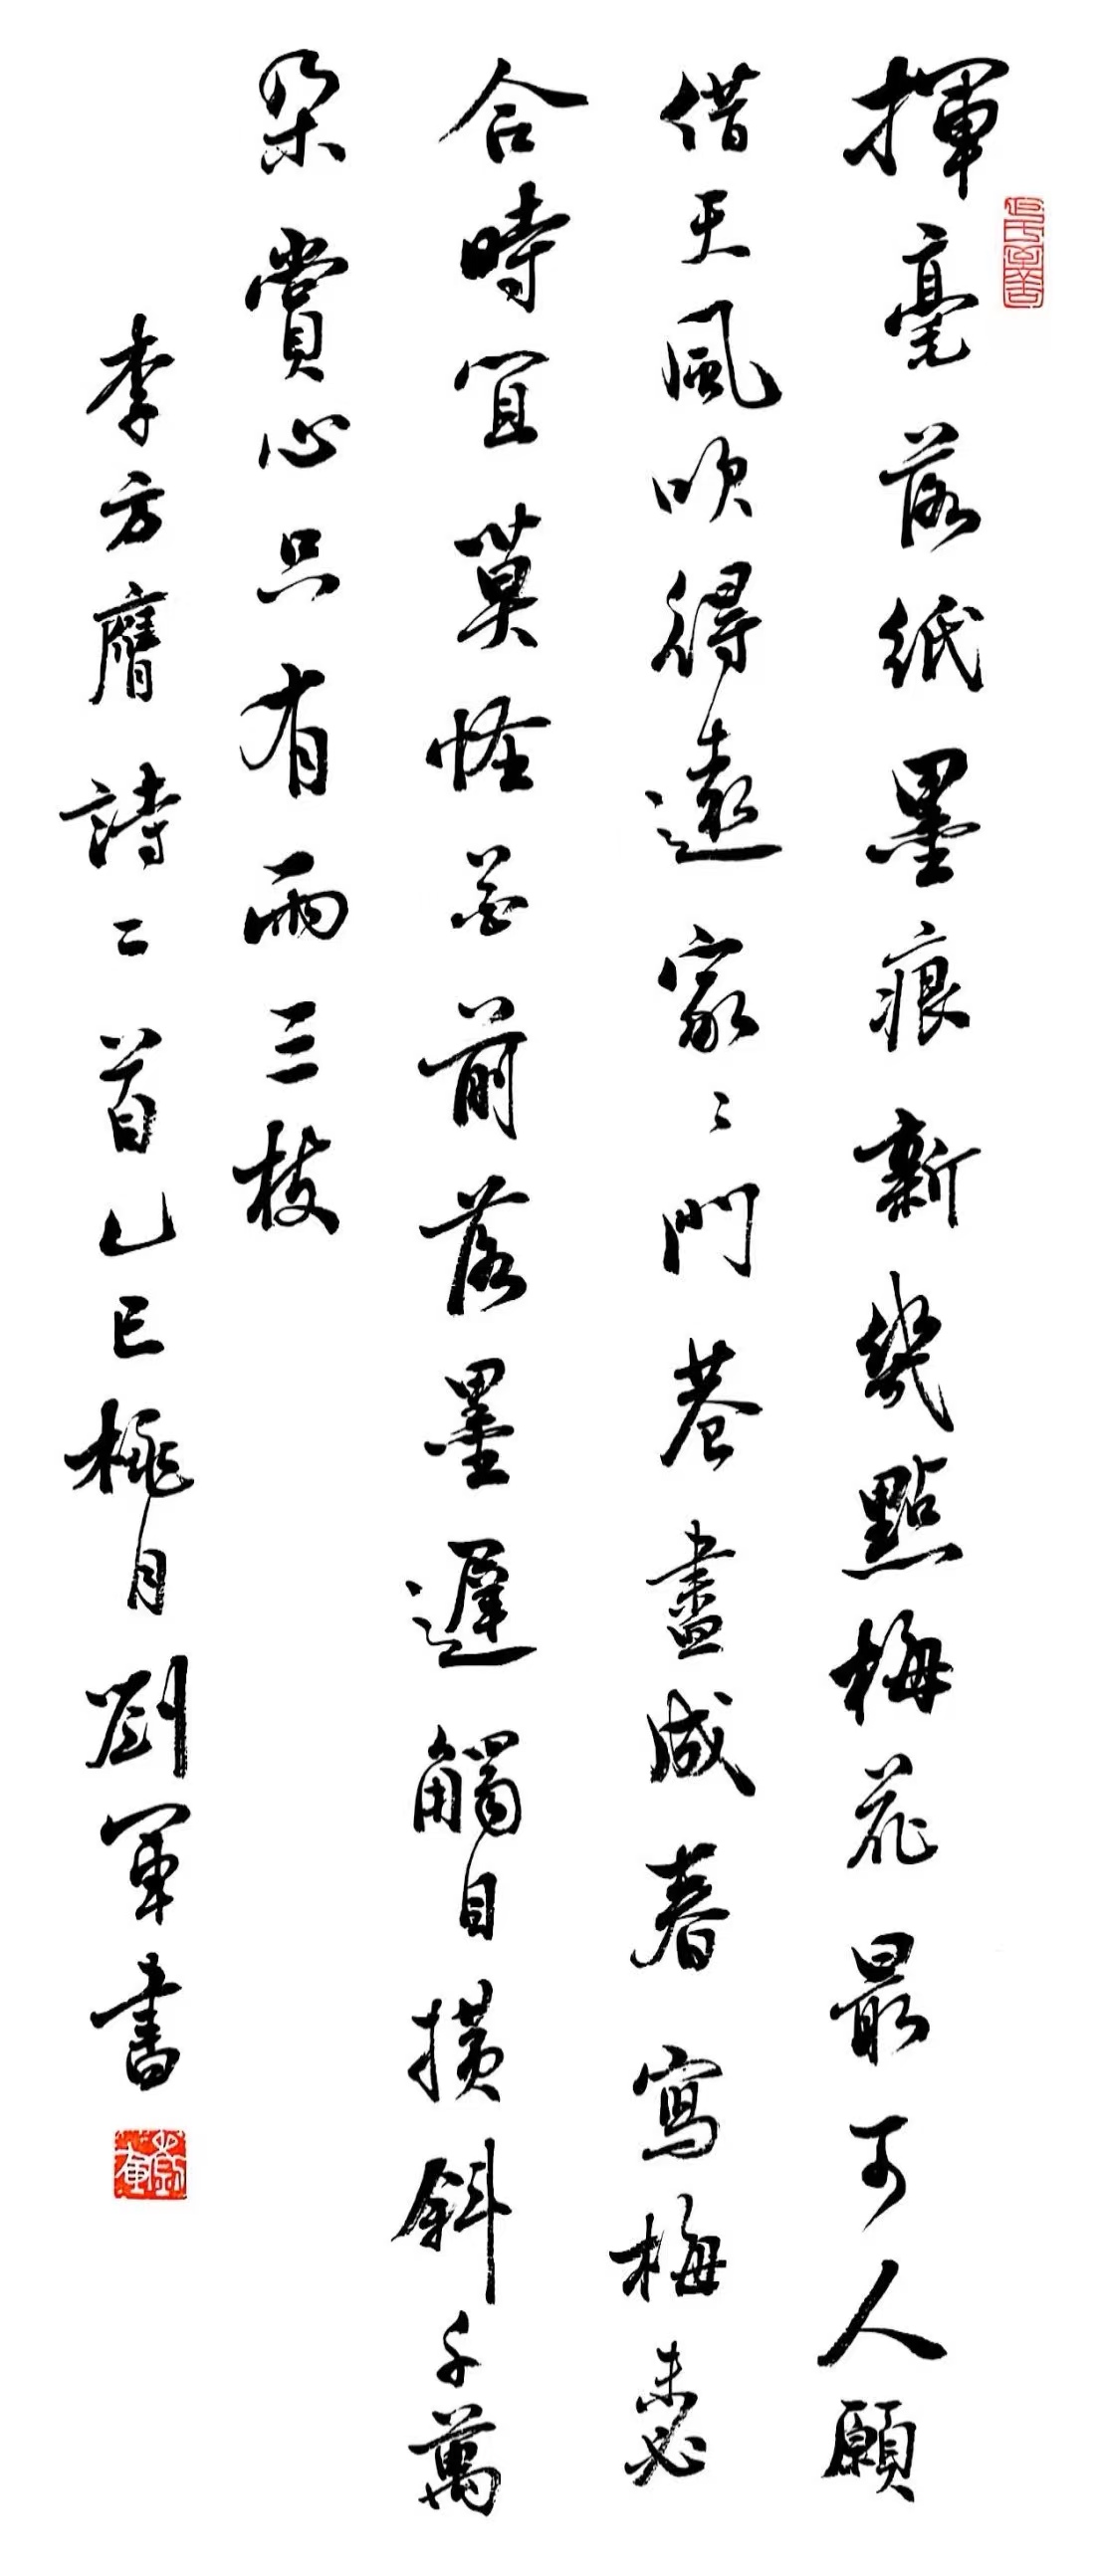 揮毫落紙墨痕新幾點梅花最可人願
借天風吹得遠家〻門巷盡成春寫梅未必
合時宜莫怪花前落墨遲觸目橫斜千萬
朵賞心只有兩三枝
李方膺詩二首乙巳桃月劉軍書
劉軍